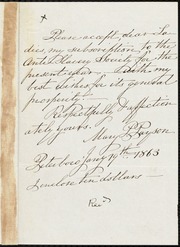 x
Please accept, dear La-
dies, my subscription to the
Anti-Slavery Society for the
present year — with my
best wishes for its general
prosperity.
Respectfully & affection-
ately Yours,
Mary P. Payson
Peterboro Jany 19th 1863
Enclose Ten dollars —
Recd